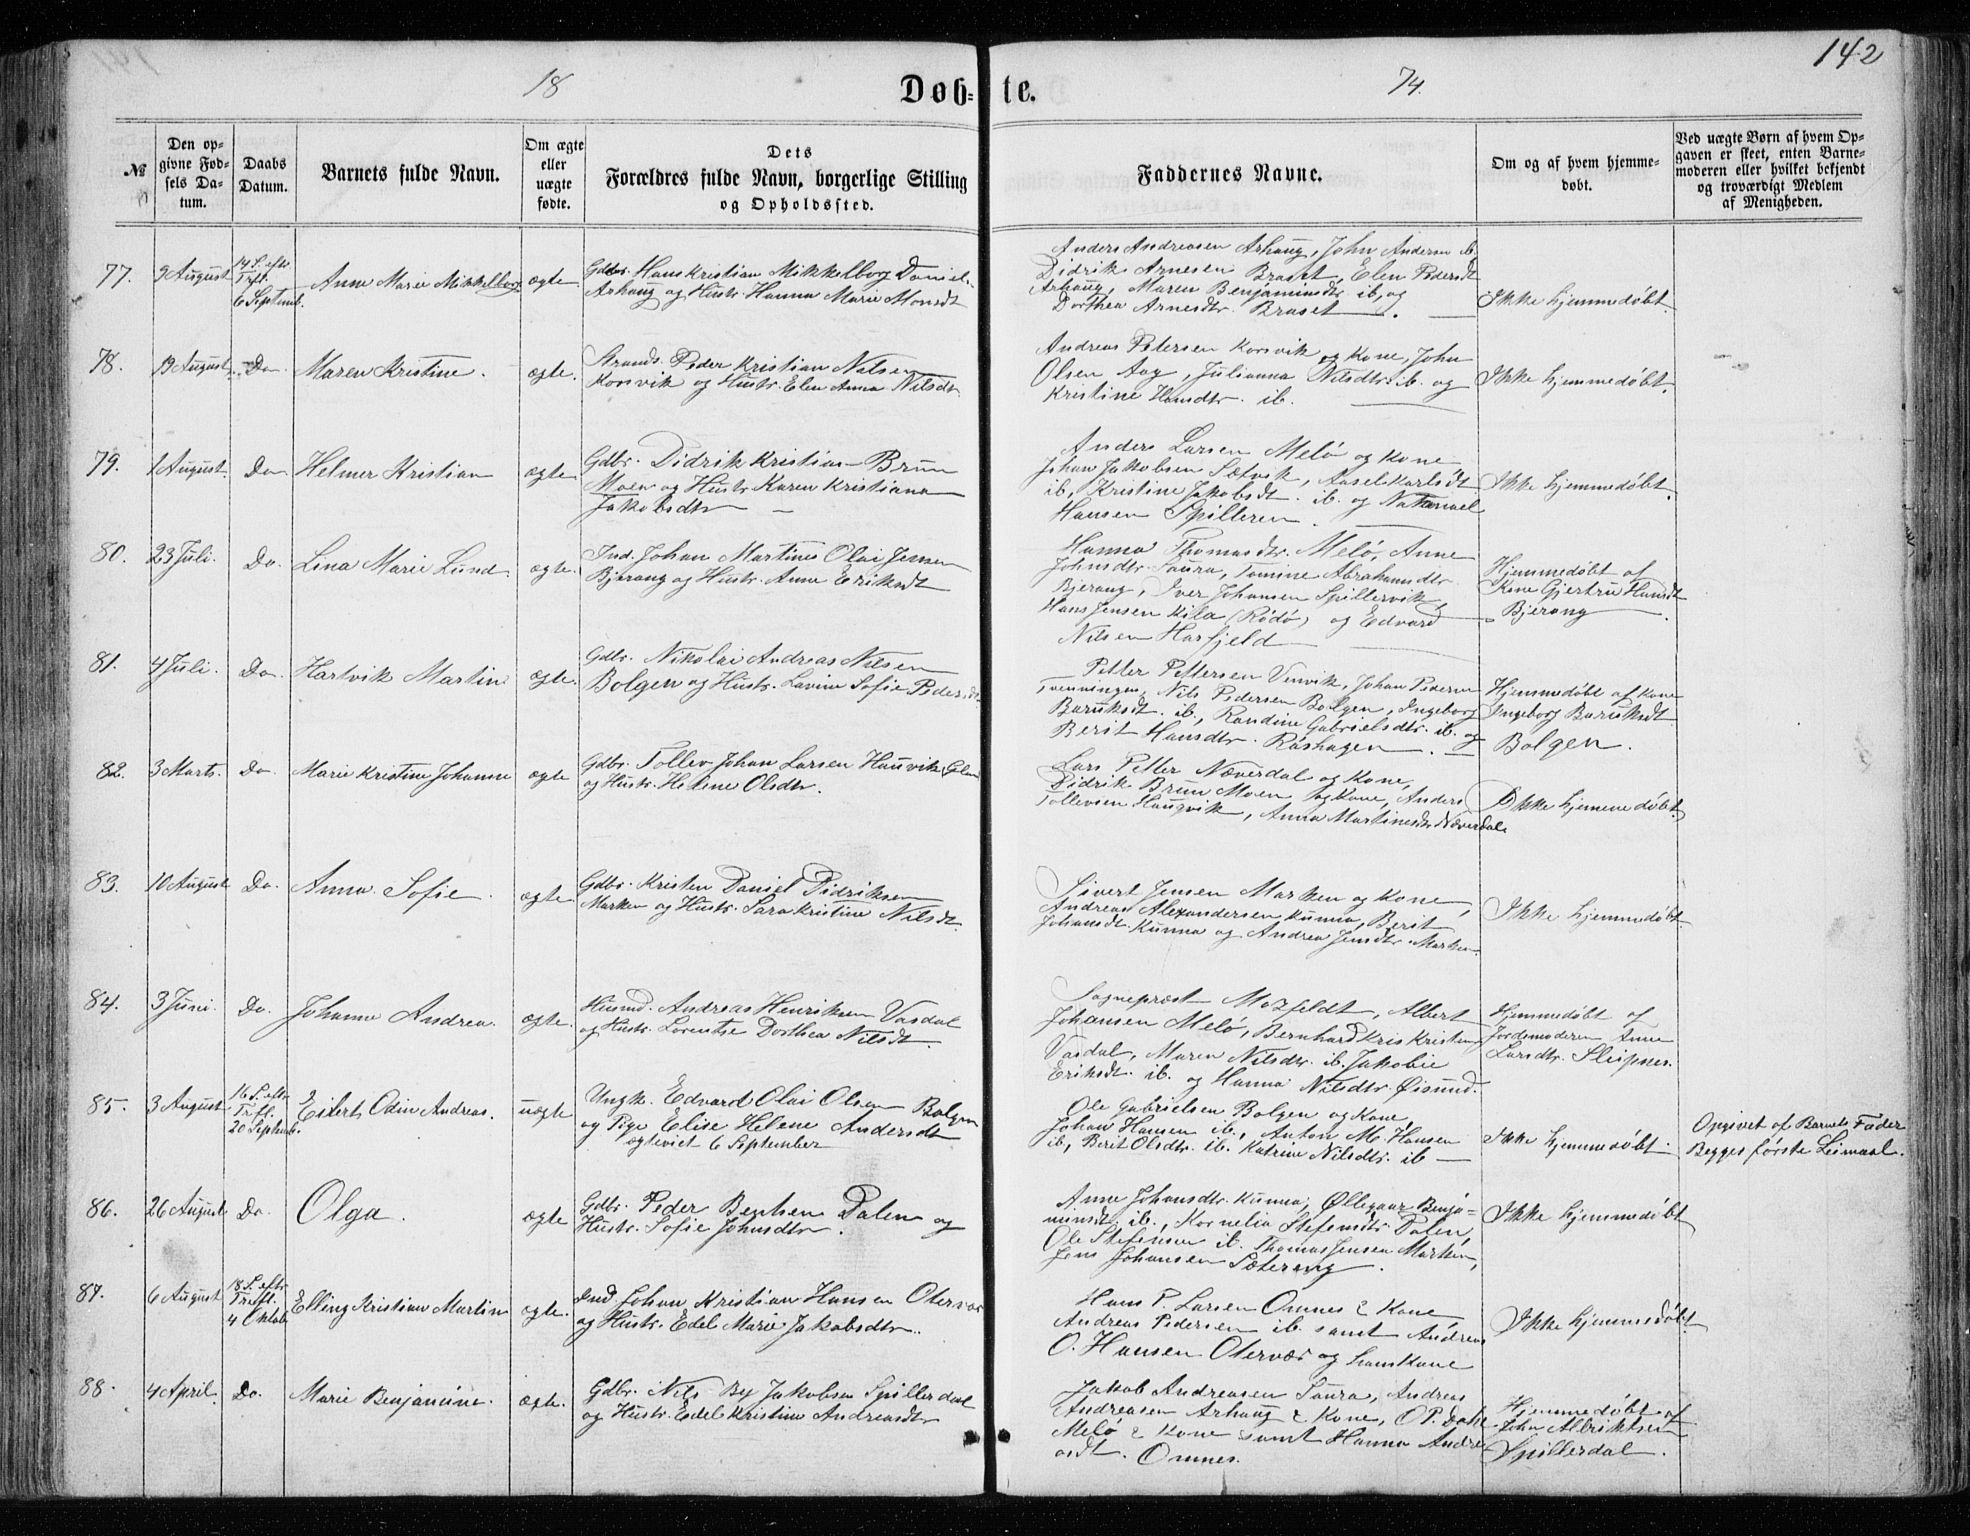 142
18 74.
Døbte.
№
Den opgivne Fødsels Datum.
Daabs Datum.
Barnets fulde Navn.
Om ægte eller uægte fødte.
Dets Forældres fulde Navn, borgerlige Stilling og Opholdssted.
Faddernes Navne.
Om og af hvem hjemmedøbt.
Ved uægte Børn af hvem Opgaven er skeet, enten Barnemoderen eller hvilket bekjendt og troværdigt Medlem af Menigheden.
77. 9 August 14 S. eftr Trft. 6 Septemb. Anne Marie Mikkelborg ægte
Gdbr. Hans Kristian Mikkelborg Daniels.
Arhaug og Hustr. Hanna Marie Monsdt
Anders Andreasen Arhaug, John Andersen ib.
Didrik Arnesen Braset, Elen Pedersdt
Arhaug, Maren Benjaminsdtr ib, og
Dorthea Arnesdtr. Braset.
Ikke hjemmedøbt
78. 13 August Do Maren Kristine. ægte.
Strands. Peder Kristian Nilsen
Korsvik og Hustr. Elen Anna Nilsdtr.
Andreas Petersen Korsvik og Kone, John
Olsen Aag, Julianna Nilsdtr. ib. og
Kristine Hansdtr. ib.
Ikke hjemmedøbt.
79. 1 August. Do Helmer Kristian ægte
Gdbr. Didrik Kristian Brun
Moen og Hustr. Karen Kristiana
Jakobsdtr
Anders Larsen Melø og Kone
Johan Jakobsen Sætvik, Karlsdt
ib, Kristine Jakobsdt. ib. og Natanael
Hansen Spilleren.
Ikke hjemmedøbt.
80. 23 Juli. Do. Lina Marie Lund. ægte.
Ind. Johan Martines Olai Jensen
Bjerang og Hustr. Anne Eriksdt
Hanna Thomasdtr. Melø, Anne
Johnsdtr. Saura, Tomine Abrahamsdtr
Bjerang, Iver Johansen Spillervik
Hans Jensen Kila (Rödö) og Edvard
Nilsen Harfjeld
Hjemmedøbt af
Kone Gjertru Hansdt
Bjerang
81. 4 Juli. Do. Hartvik Martin ægte.
Gdbr. Nikolai Andreas Nilsen
Bolgen og Hustr. Lavina Sofie Pedersdt.
Petter Pettersen Venvik, Johan Pedersen
Tvenningen, Nils Pedersen Bolgen, Ingeborg
Baruksdt. ib., Randine Gabrielsdtr. ib. og
Berit Hansdtr. Råshagen.
Hjemmedøbt af Kone
Ingeborg Baruksdt
Bolgen.
82. 3 Marts. Do. Marie Kristine Johanne ægte
Gdbr. Tollev Johan Larsen Haugvik,
og Hustr. Helene Olsdtr.
Lars Petter Næverdal og Kone,
Didrik Brun Moen og Kone, Anders
Tollevsen Haugvik, Anna Martinesdtr Næverdal
Ikke hjemmedøbt.
83. 10 August Do. Anna Sofie. ægte.
Gdbr. Kristen Daniel Didriksen
Marken og Hustr. Sara Kristine Nilsdt.
Sivert Jensen Marken og Kone,
Andreas Alexandersen Kunna, Berit
Johansdt. Kunna og Andrea Jensdtr. Marken.
Ikke hjemmedøbt.
84. 3 Juni. Do. Johanne Andrea. ægte.
Husmd. Andreas Henriksen Vasdal
og Hustr. Lorentse Dorthea Nilsdt.
Sogneprest Motzfeldt, Albert
Johansen Melø, Bernhard Kristensen
Vasdal, Maren Nilsdtr. ib, Jakobie
Eriksdt. ib. og Hanna Nilsdtr. Øisund.
Hjemmedøbt af
Jordemoderen Anne
Larsdtr. Sleipnes.
85. 3 August 16 S. eftr. Trft. 20 Septemb. Eilert Odin Andreas. uægte
Ungk. Edvard Olai Olsen Bolgen
og Pige Elise Helene Andersdt
ægteviet 6 September
Ole Gabrielsen Bolgen og Kone
Johan Hansen ib., Anton M. Hansen
ib, Berit Olsdtr. ib. Katrine Nilsdtr. ib
Ikke hjemmedøbt.
Opgivet af Barnets Fader
Begges første Leirmaal.
86. 26 August Do. Olga. ægte
Gdbr. Peder Bentsen Dalen og
Hustr. Sofie Johnsdtr.
Anne Johansdtr. Kunna, Øllegaar Benjaminsdt.
ib., Kornelia Stefensdtr. Dalen,
Ole Stefensen ib. Thomas Jensen Marken,
Jens Johansen Sætereng.
Ikke hjemmedøbt
87. 6 August 18 S. eftr. Trift. 4 Oktob. Elling Kristian Martin ægte.
Ind. Johan Kristian Hansen Otervær
og Hustr. Edel Marie Jakobsdtr.
Hans P. Larsen Omnes & Kone
Andreas Pedersen ib. samt Andreas
O. Hansen Otervær og hans Kone
Ikke hjemmedøbt
88. 4 April Do. Marie Benjamine. ægte.
Gdbr. Nils By Jakobsen Spillerdal
og Hustr. Edel Kristine Andreasdtr
Jakob Andreasen Saura, Andreas
Andreasen Arhaug & Kone, O P. Dahl
Melø & Kone samt Hanna Andreasdt.
Omnes.
Hjemmedøbt af
John Albriktsen
Spillerdal.